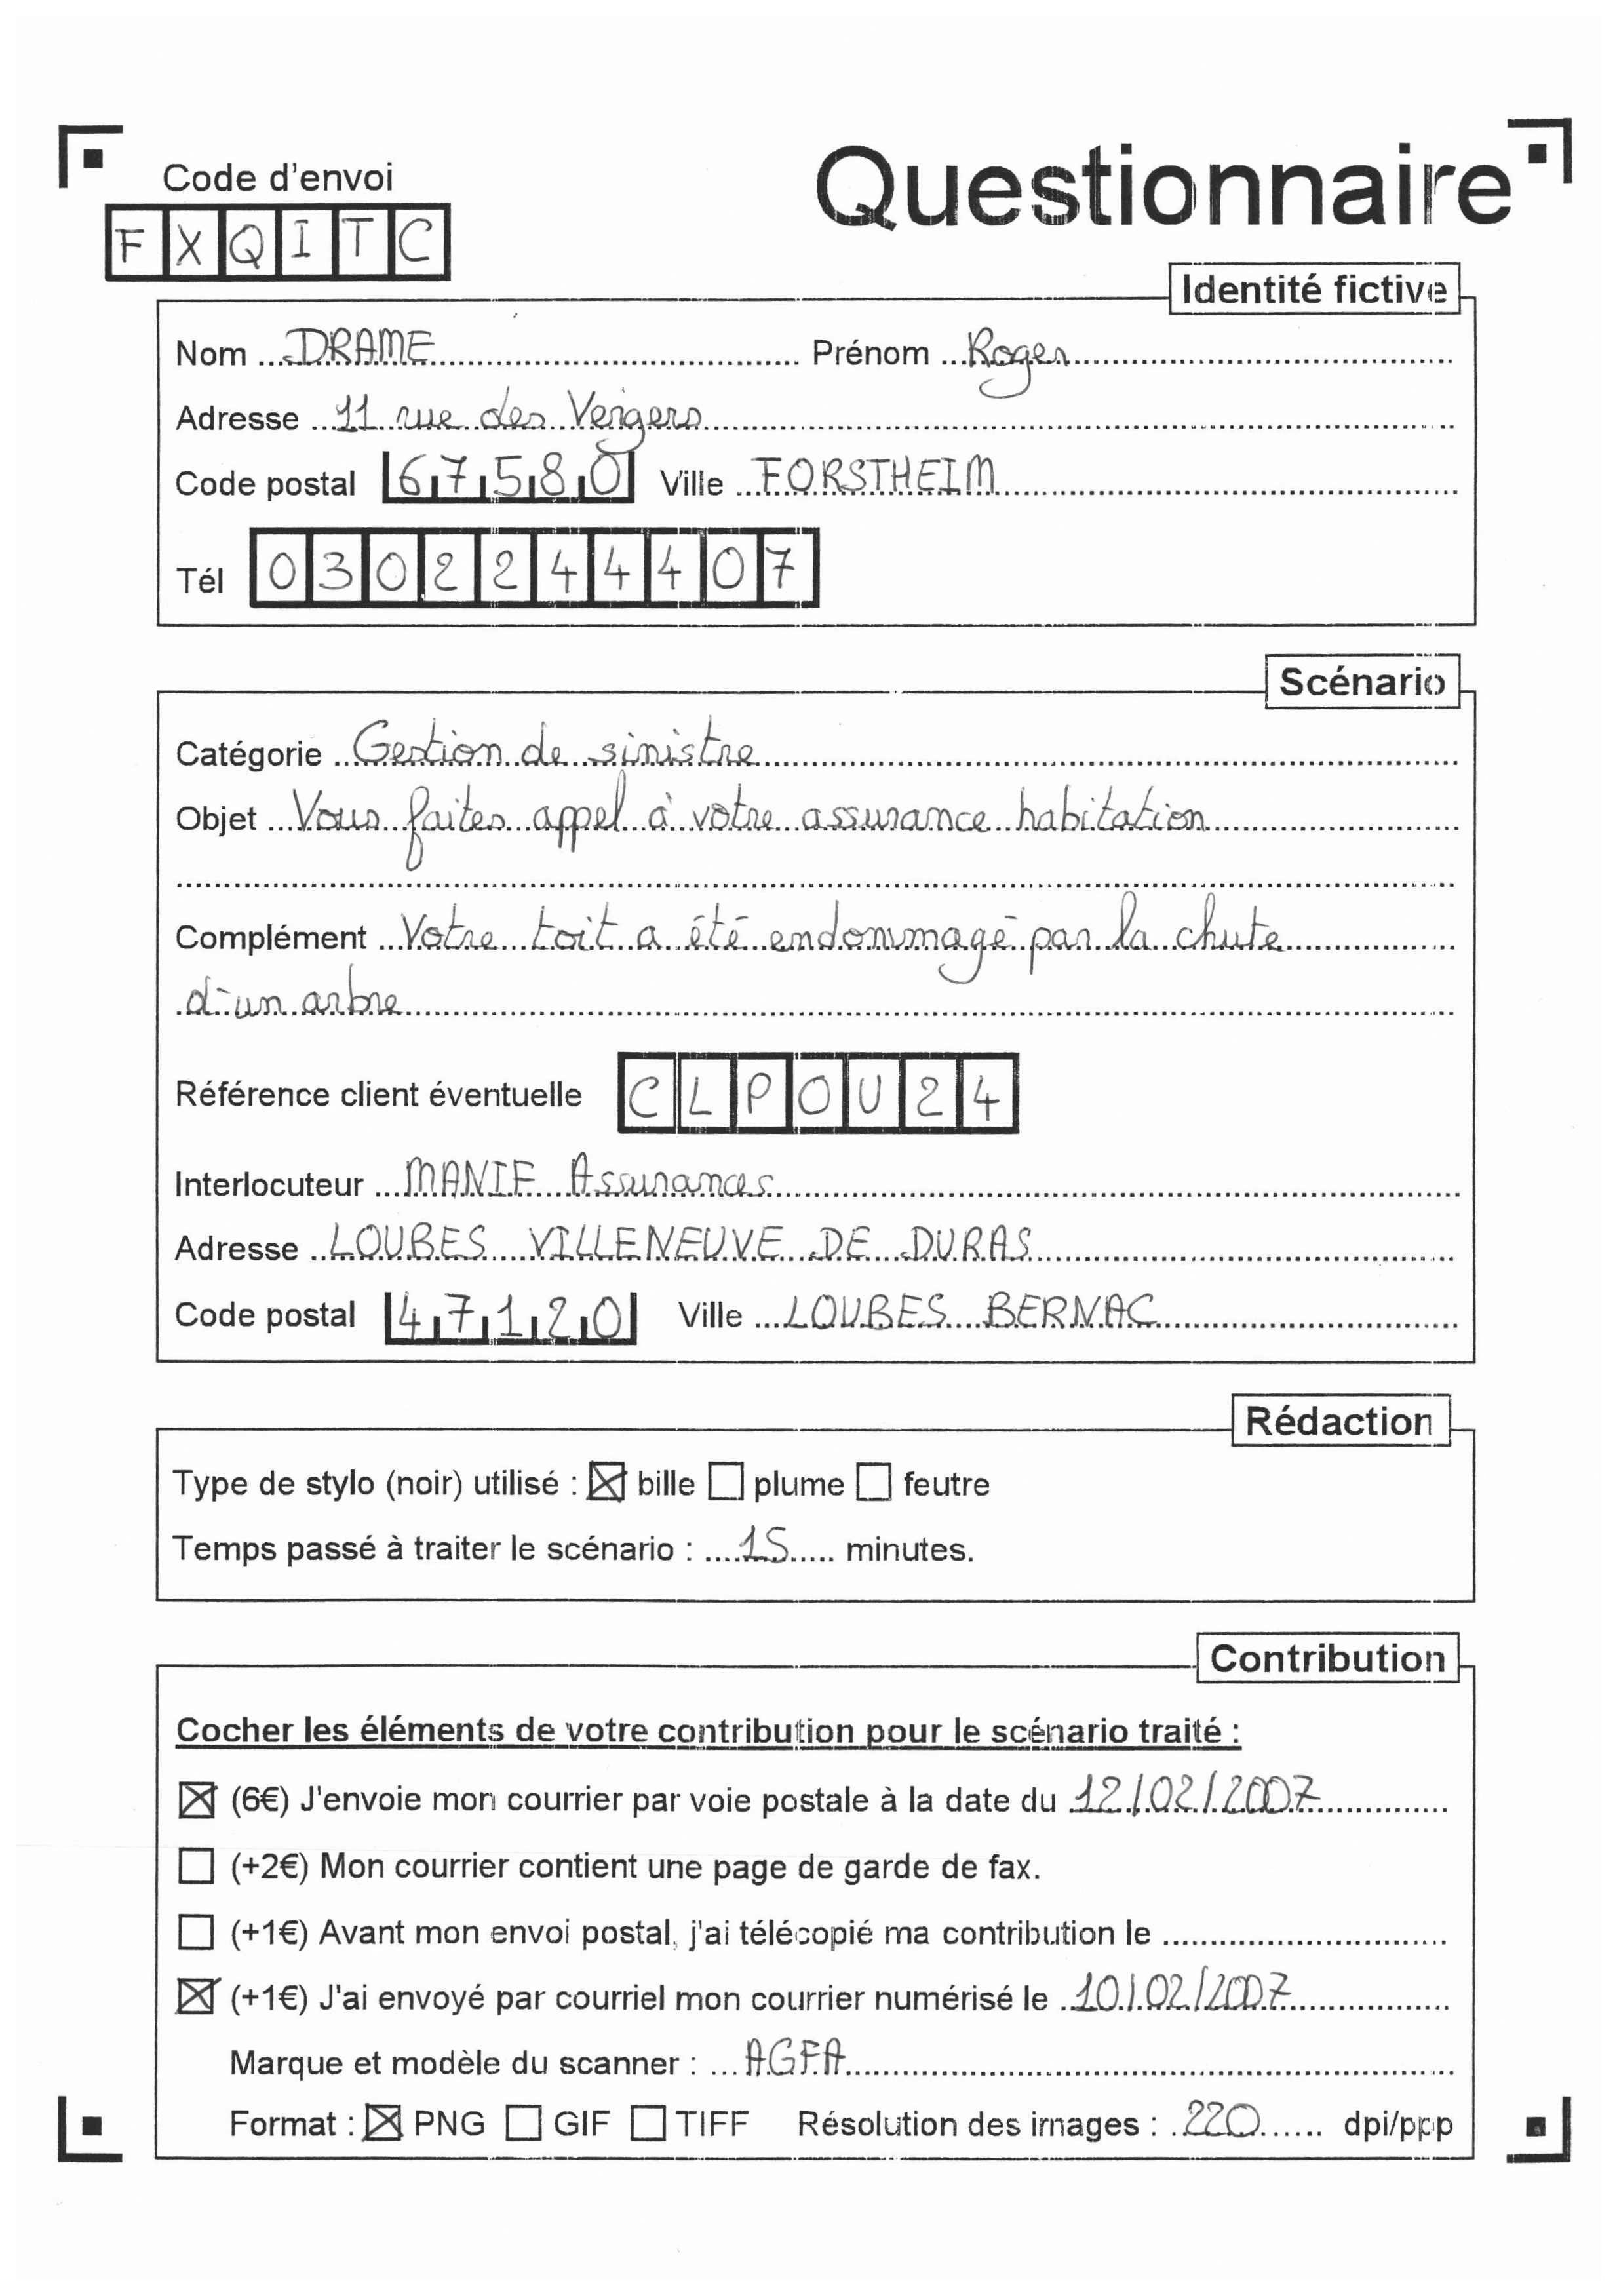 Code d'envoi
Questionnaire
FXQITC
Identité fictive
Nom DRAME Prénom Roger
Adresse 11 rue des Vergers
Code postal 67580 Ville FORSTHEIM
Tél 0302244407
Scénario
Catégorie Gestion de sinistre
Objet Vous faites appel à votre assurance habitation
Complément Votre toit a été endommagé par la chute
d'un arbre
Référence client éventuelle CLPOU24
Interlocuteur MANIF Assurances
Adresse LOUBES VILLENEUVE DE DURAS
Code postal 47120 Ville LOUBES BERNAC
Rédaction
Type de stylo (noir) utilisé : ☒ bille ☐ plume ☐ feutre
Temps passé à traiter le scénario : 15 minutes.
Contribution
Cocher les éléments de votre contribution pour le scénario traité :
☒ (6€) J'envoie mon courrier par voie postale à la date du 12/02/2007
☐ (+2€) Mon courrier contient une page de garde de fax.
☐ (+1€) Avant mon envoi postal, j'ai télécopié ma contribution le
☒ (+1€) J'ai envoyé par courriel mon courrier numérisé le 10/02/2007
Marque et modèle du scanner : AGFA
Format : ☒ PNG ☐ GIF ☐ TIFF Résolution des images : 220 dpi/ppp